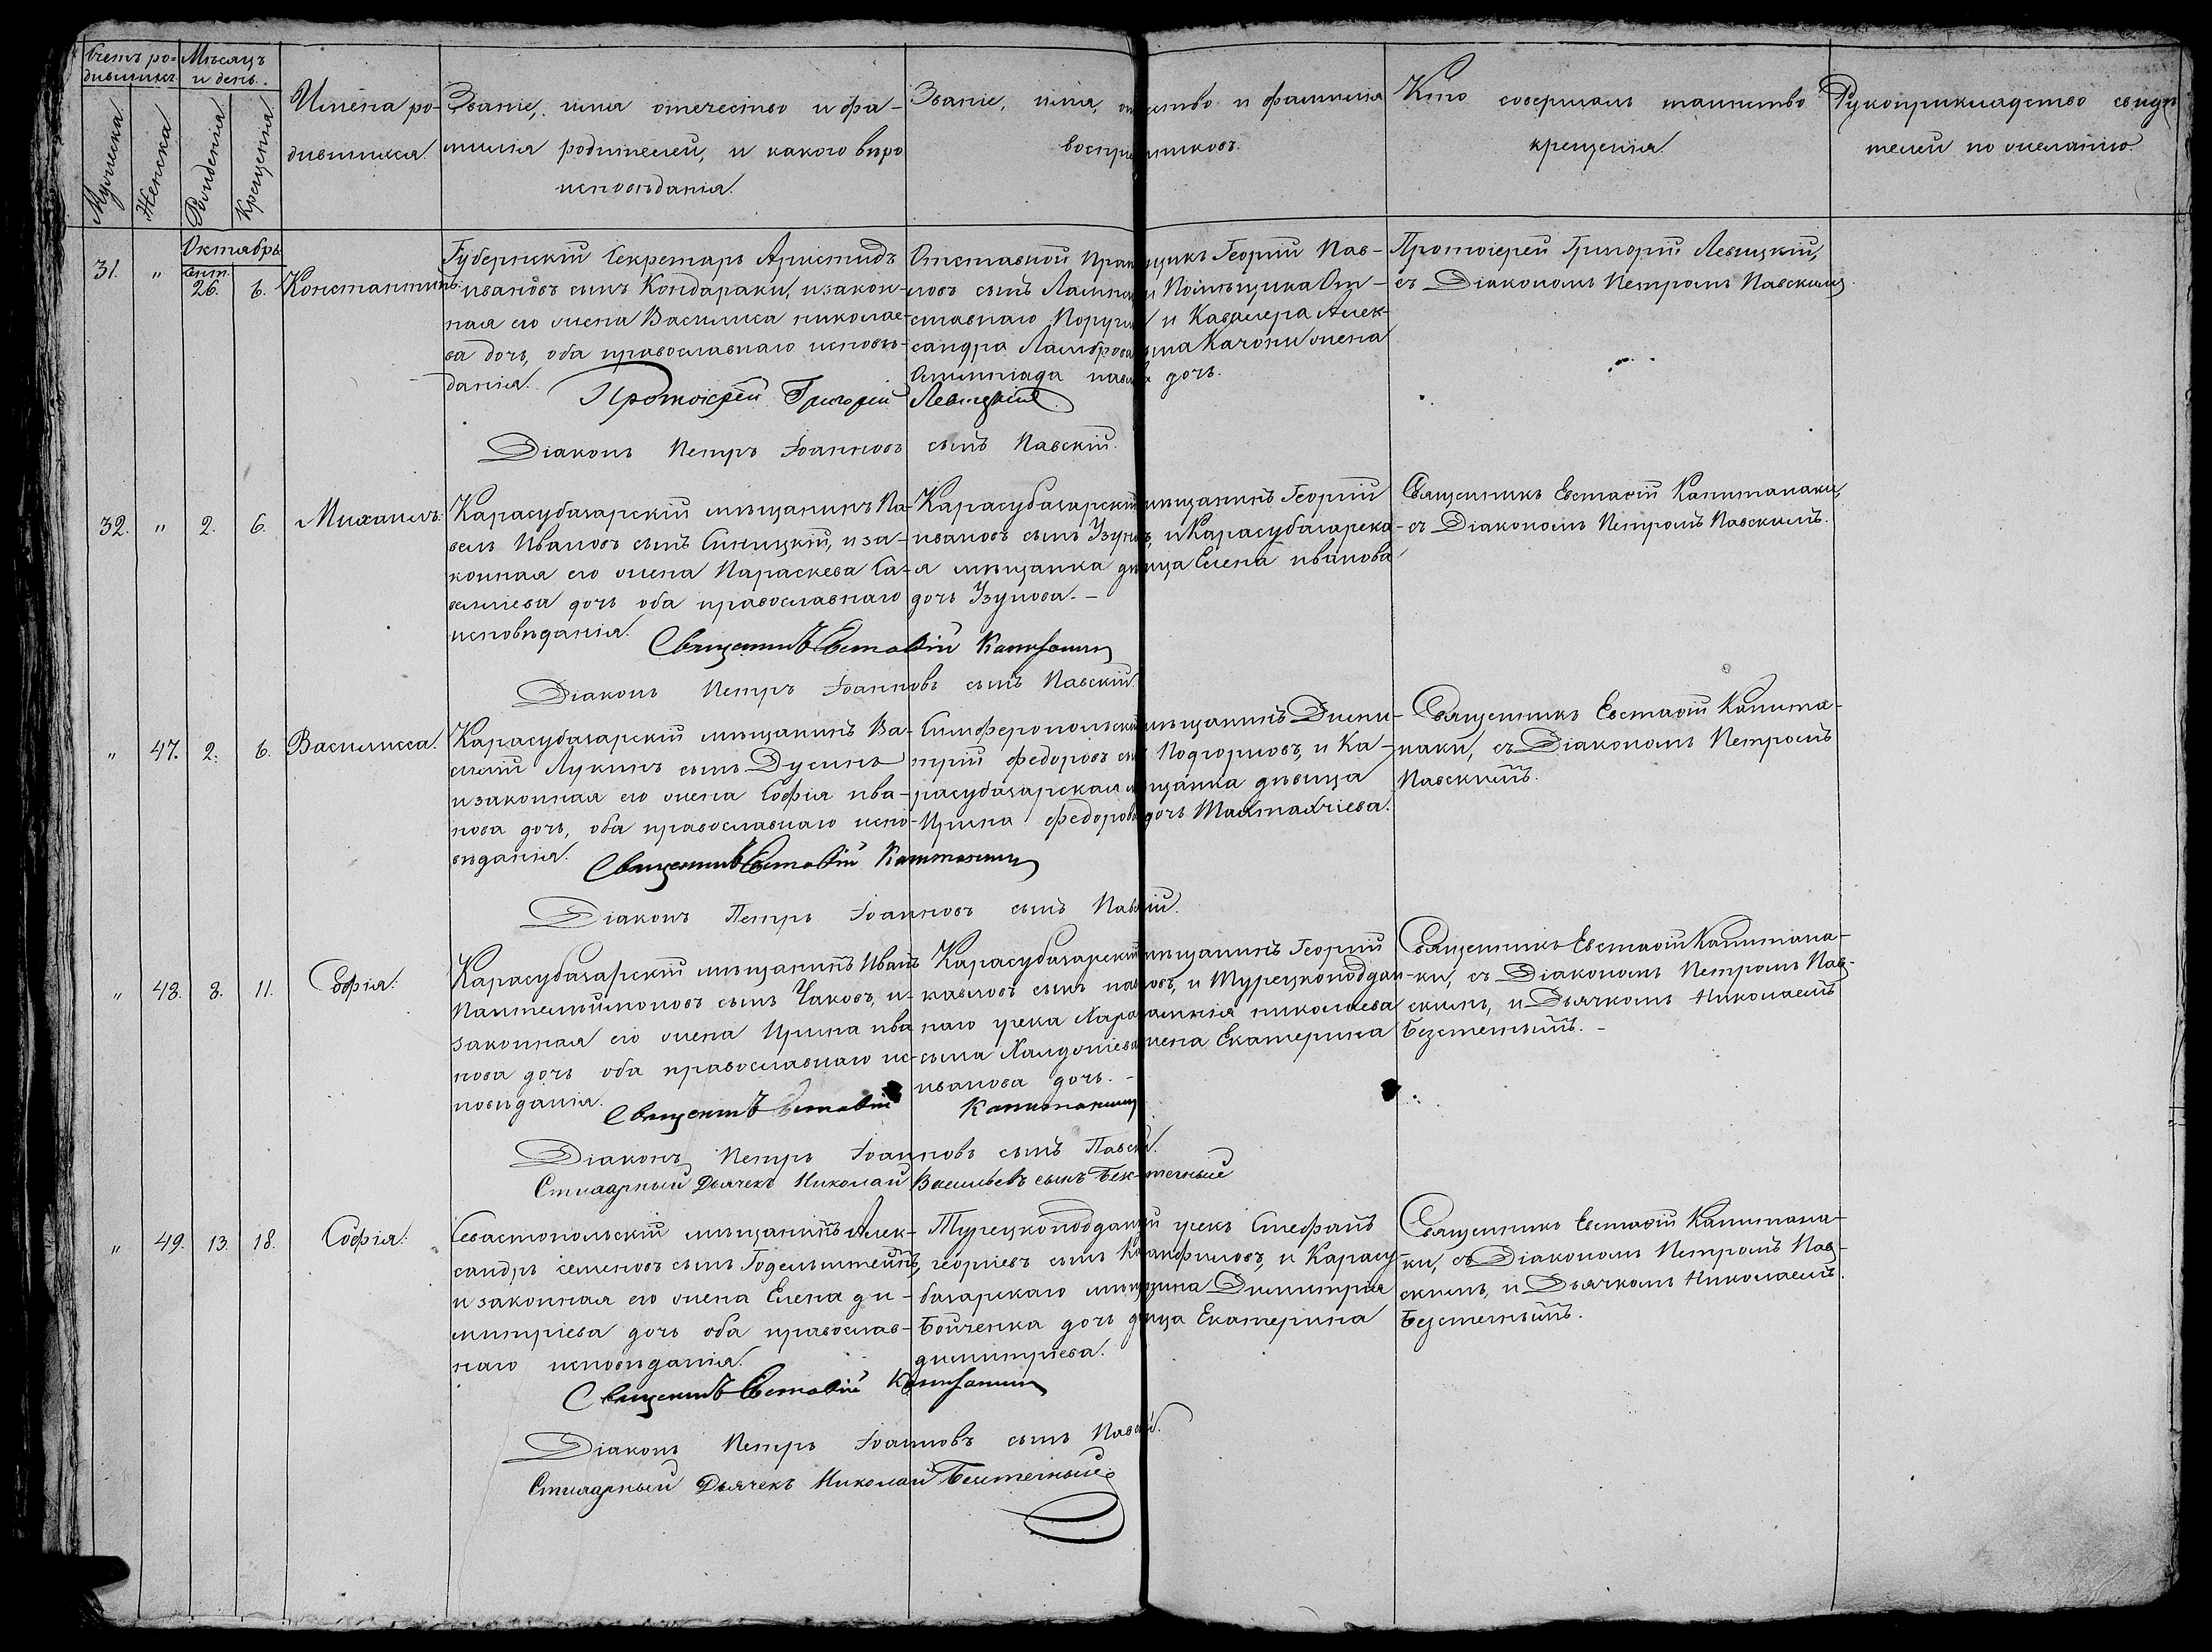 Счетъ ро-
дившихся.
Мѣсяцъ
и день.
Мужеска.
Женска.
Рожденія.
Крещенія.
Имена ро-
дившихся.
Званіе, имя отечество и фа-
милія родителей, и какого вѣро
исповѣданія.
Званіе, имя, отчество и фамилія
воспріемниковъ.
Кто совершалъ таинство
крещенія.
Рукоприкладство свидѣ
телей по желанію.
Октябрь
31. " сент. 26. 6. Константинъ.
Губернскій Секретарь Аристидъ
ивановъ сынъ Кондараки, и закон-
ная его жена Василиса николае-
ва дочь, оба православнаго исповѣ-
данія.
Отставной Прапорщикъ Георгій Пав-
ловъ сынъ Помѣщика От-
ставнаго Поручика и Кавалера Алек-
сандра Ламброва сына Качони жена
Олимпіада павлова дочь.
Протоіерей Григорій Левицкій,
съ Діакономъ Петромъ Павскимъ.
Протоіерей Григорій Левицкій
Діаконъ Петръ Іоанновъ сынъ Павскій.
32. " 2. 6. Михаилъ.
Карасубазарскій мѣщанинъ Па-
велъ Ивановъ сынъ Синицкій, и за-
конная его жена Параскева Са-
велиева дочь оба православнаго
исповѣданія.
Карасубазарскій мѣщанинъ Георгій
ивановъ сынъ Узуновъ, и Карасубазарска-
я мѣщанка дѣвица Елена иванова
дочь Узунова. -
Священникъ Евстафій Капитанаки,
съ Діакономъ Петромъ Павскимъ.
Священникъ Евстафій Капитанаки
Діаконъ Петръ Іоанновъ сынъ Павскій.
" 47. 2. 6. Василисса.
Карасубазарскій мѣщанинъ Ва-
силій Лукинъ сынъ Дусинъ
и законная его жена Софія ива-
нова дочь, оба православнаго испо-
вѣданія.
Симферопольскій мѣщанинъ Дими-
трій федоровъ сынъ Подгорновъ, и Ка-
расубазарская мѣщанка дѣвица
Ирина федорова дочь Тахтахчіева.
Священникъ Евстафій Капита-
наки, съ Діакономъ Петромъ
Павскимъ.
Священникъ Евстафій Капитанаки
Діаконъ Петръ Іоанновъ сынъ Павскій.
" 48. 8. 11. Софія.
Карасубазарскій мѣщанинъ Иванъ
Пантелиимоновъ сынъ Чаковъ, и
законная его жена Ирина ива
нова дочь оба православнаго ис-
повѣданія.
Карасубазарскій мѣщанинъ Георгій
павловъ сынъ павловъ, и Турецкоподдан-
наго грека Харалампія николаева
сына Халдогіева жена Екатерина
иванова дочь. -
Священникъ Евстафій Капитана-
ки, съ Діакономъ Петромъ Пав-
скимъ, и Дьячкомъ Николаемъ
Безстеннымъ. -
Священникъ Евстафій Капитанаки
Діаконъ Петръ Іоанновъ сынъ Павскій.
Стихарный Дьячекъ Николай Васильевъ сынъ
" 49. 13. 18. Софія.
Севастопольскій мѣщанинъ Алек-
сандръ семеновъ сынъ Годельштейнъ,
и законная его жена Елена ди-
митріева дочь оба православ-
наго исповѣданія.
Турецкоподданный грекъ Стефанъ
георгіевъ сынъ и Карасу-
базарскаго мѣщанина Димитрія
Бойченка дочь дѣвица Екатерина
димитріева.
Священникъ Евстафій Капитана-
ки, съ Діакономъ Петромъ Пав-
скимъ, и Дьячкомъ Николаемъ
Безстеннымъ.
Священникъ Евстафій Капитанаки
Діаконъ Петръ Іоанновъ сынъ Павскій.
Стихарный Дьячекъ Николай